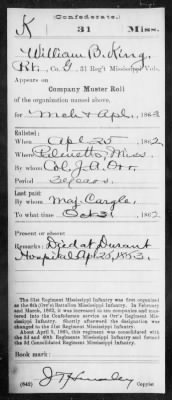 (Confederate.)
K 31 Miss.
William B. King
Pvt., Co. G, 31 Reg't Mississippi Vols.
Appears on
Company Muster Roll
of the organization named above,
for Mch & Apl, 1863
Enlisted:
When Apl 25, 1862
Where Palmetto, Miss.
By whom Col. J. A. Orr.
Period 3 years.
Last paid:
By whom Maj. Cargle.
To what time Oct 31, 1862
Present or absent
Remarks: Died at Durant
Hospital Apl 25, 1863.
The 31st Regiment Mississippi Infantry was first organized
as the 6th (Orr's) Battalion Mississippi Infantry. In February
and March, 1862, it was increased to ten companies and mustered
into the Confederate service as Orr's Regiment Mississippi
Infantry. Shortly afterward the designation was
changed to the 31st Regiment Mississippi Infantry.
About April 9, 1865, this regiment was consolidated with
the 3d and 40th Regiments Mississippi Infantry and formed
the 3d Consolidated Regiment Mississippi Infantry.
Book mark:
(642)
Copyist.